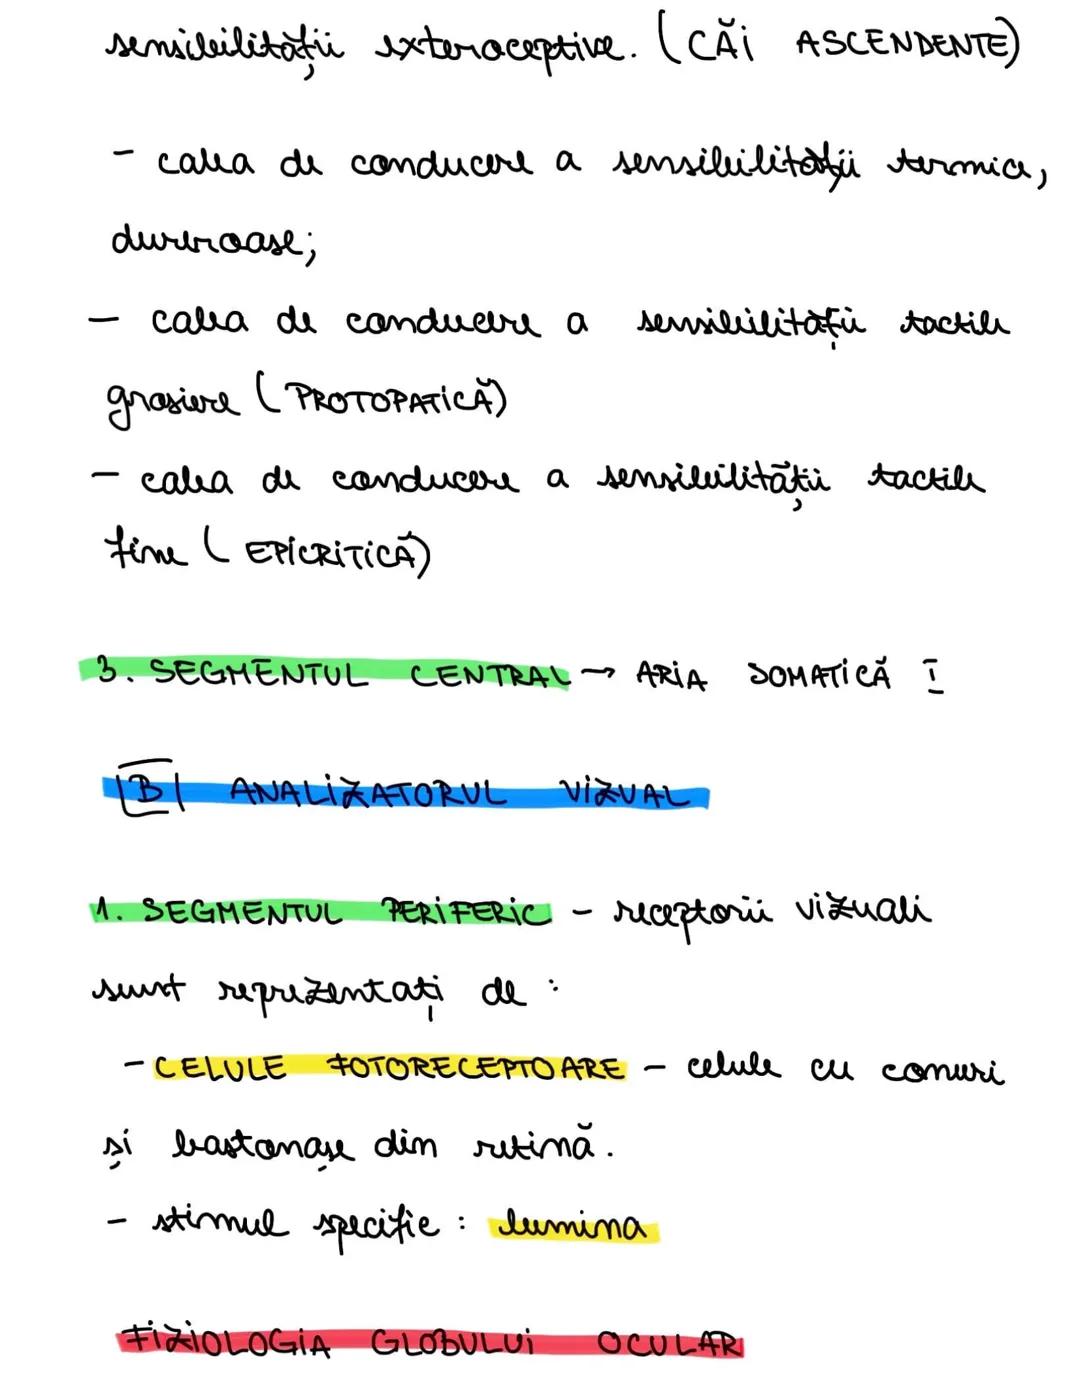 sensibilității exteroceptive. (CĂi ASCENDENTE)
- calea de conducere a sensibilității termice,
dureroase;
- calea de conducere a sensibilității tactile
grosiere (PROTOPATiCĂ)
- calea de conducere a sensibilității tactile
fine (EPiCRiTiCĂ)
3. SEGMENTUL CENTRAL → ARiA SOMATiCĂ I
B ANALiZATORUL ViZUAL
1. SEGMENTUL PERiFERiC - receptorii vizuali
sunt reprezentați de :
- CELULE FOTORECEPTOARE - celule cu conuri
și bastonașe din retină.
- stimul specific : lumina
FiZiOLOGiA GLOBULUi OCULAR